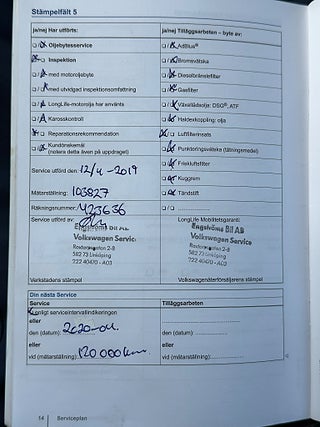 Stämpelfält 5
ja/nej Har utförts:
Oljebytesservice
Inspektion
med motoroljebyte
med utvidgad inspektionsomfattning
LongLife-motorolja har använts
Karosskontroll
Reparationsrekommendation
Kundönskemål
(notera detta även på uppdraget)
Service utförd den: 12/4-2019
Mätarställning: 103827
Räkningsnummer: 423636
Service utförd av:
Engströms Bil AB
Volkswagen Service
582 73 Linköping
Verkstadens stämpel
ja/nej Tilläggsarbeten – byte av:
AdBlue®
Bromsvätska
Dieselbränslefilter
Gasfilter
Växellådsolja: DSG®, ATF
Haldexkoppling: olja
Luftfilterinsats
Punkteringsvätska (tätningsmedel)
Friskluftsfilter
Kuggrem
Tändstift
LongLife Mobilitetsgaranti:
Engströms Bil AB
Volkswagen Service
582 73 Linköping
Volkswagenåterförsäljarens stämpel
Din nästa Service
Service
enligt serviceintervallindikeringen
eller
den (datum): 2020-04
eller
vid (mätarställning): 120 000 km.
Tilläggsarbeten:
den (datum):
eller
vid (mätarställning):
14 Serviceplan